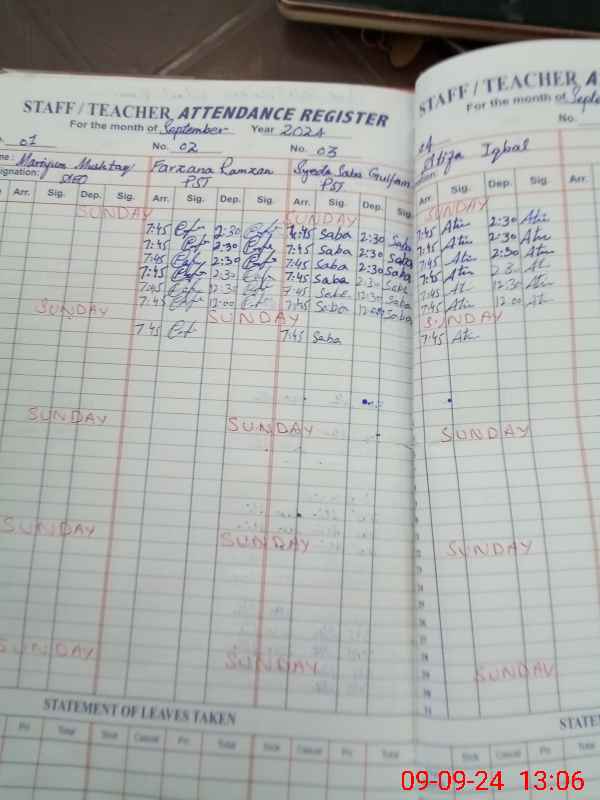 STAFF / TEACHER ATTENDANCE REGISTER
For the month of September Year 2024
01 No. 02 No. 03
Mariyum Mushtaq Farzana Ramzan Syeda Saba Gulfam
signation: PST PST
Arr. Sig. Dep. Sig. Arr. Sig. Dep. Sig. Arr. Sig. Dep. Sig.
SUNDAY SUNDAY
7:45 2:30 7:45 Saba 2:30 Saba
7:45 2:30 7:45 Saba 2:30 Saba
7:45 2:30 7:45 Saba 2:30 Saba
7:45 2:30 7:45 Saba 2:30 Saba
7:45 12:30 7:45 Saba 12:30 Saba
7:45 12:00 7:45 Saba 12:00 Saba
SUNDAY SUNDAY
7:45 7:45 Saba
SUNDAY SUNDAY
SUNDAY SUNDAY
SUNDAY SUNDAY
STATEMENT OF LEAVES TAKEN
Pri Total Sick Casual Pri Total Sick Casual Pri Total
STAFF / TEACHER AT
For the month of Septe
No.
04
Atiza Iqbal
Arr. Sig. Dep. Sig. Arr.
SUNDAY
7:45 Ati 2:30 Ati
7:45 Ati 2:30 Ati
7:45 Ati 2:30 Ati
7:45 Ati 2:30 Ati
7:45 Ati 12:30 Ati
7:45 Ati 12:00 Ati
SUNDAY
7:45 Ati
SUNDAY
SUNDAY
SUNDAY
STATE
Sick Casual Pri Total Sick
09-09-24 13:06